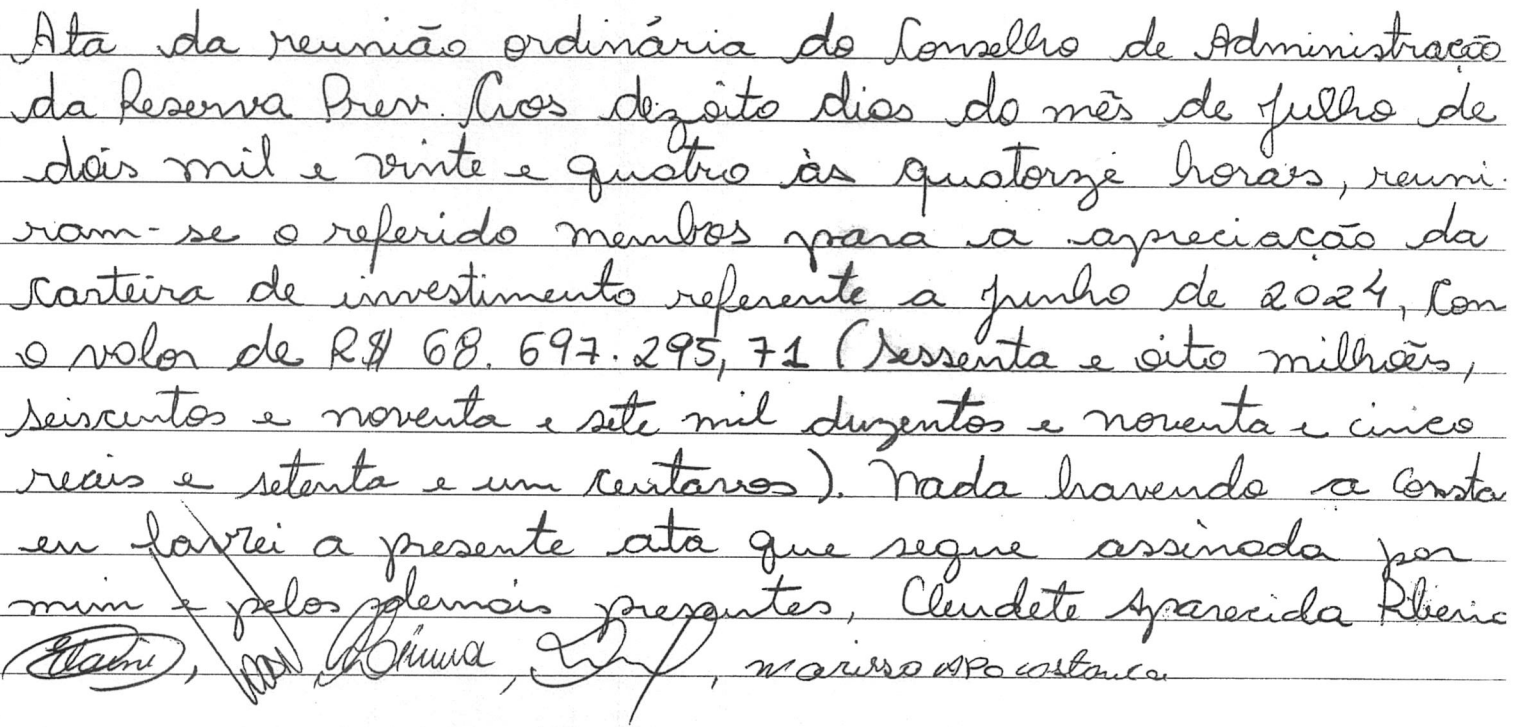 Ata da reunião ordinária do Conselho de Administração
da Reserva Prev. Aos dezoito dias do mês de julho de
dois mil e vinte e quatro às quatorze horas, reuni-
ram-se o referido membros para a apreciação da
carteira de investimento referente a junho de 2024, Com
o valor de R$ 68.697.295,71 (sessenta e oito milhões,
seiscentos e noventa e sete mil duzentos e noventa e cinco
reais e setenta e um centavos). Nada havendo a consta
eu lavrei a presente ata que segue assinada por
mim e pelos demais presentes, Claudete Aparecida Ribeiro
Elaine, , , , Marissa Apª